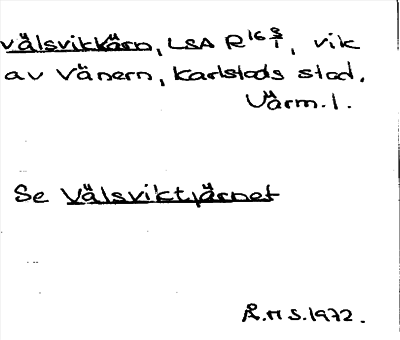 Välsvikkärn, LSA R16 8/1, vik
av Vänern, Karlstads stad.
Värm. l.
Se Välsviktjärnet
Å.H S. 1972.